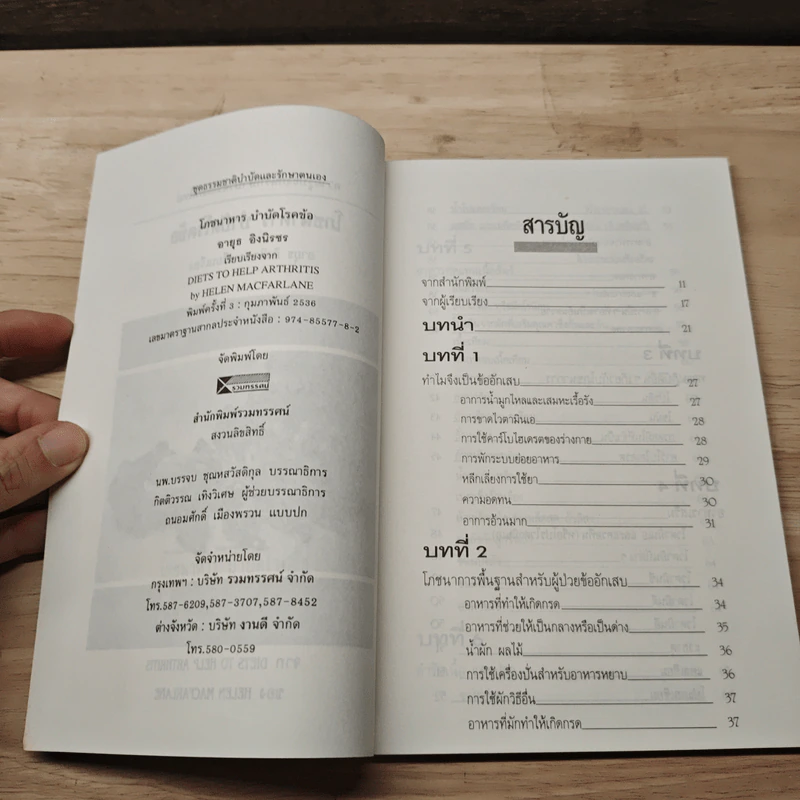 ชุดธรรมชาติบำบัดและรักษาตนเอง
โภชนาหาร บำบัดโรคข้อ
อายุธ อิงนิรชร
เรียบเรียงจาก
DIETS TO HELP ARTHRITIS
by HELEN MACFARLANE
พิมพ์ครั้งที่ 3 : กุมภาพันธ์ 2536
เลขมาตราฐานสากลประจำหนังสือ : 974-85577-8-2
จัดพิมพ์โดย
รวมทรรศน์
สำนักพิมพ์รวมทรรศน์
สงวนลิขสิทธิ์
นพ.บรรจบ ชุณหสวัสดิกุล บรรณาธิการ
กิตติวรรณ เทิงวิเศษ ผู้ช่วยบรรณาธิการ
ถนอมศักดิ์ เมืองพรวน แบบปก
จัดจำหน่ายโดย
กรุงเทพฯ : บริษัท รวมทรรศน์ จำกัด
โทร.587-6209,587-3707,587-8452
ต่างจังหวัด : บริษัท งานดี จำกัด
โทร.580-0559
สารบัญ
จากสำนักพิมพ์ 11
จากผู้เรียบเรียง 17
บทนำ 21
บทที่ 1
ทำไมจึงเป็นข้ออักเสบ 27
อาการน้ำมูกไหลและเสมหะเรื้อรัง 27
การขาดไวตามินเอ 28
การใช้คาร์โบไฮเดรตของร่างกาย 28
การพักระบบย่อยอาหาร 29
หลีกเลี่ยงการใช้ยา 30
ความอดทน 30
อาการอ้วนมาก 31
บทที่ 2
โภชนาการพื้นฐานสำหรับผู้ป่วยข้ออักเสบ 34
อาหารที่ทำให้เกิดกรด 34
อาหารที่ช่วยให้เป็นกลางหรือเป็นด่าง 35
น้ำผัก ผลไม้ 36
การใช้เครื่องปั่นสำหรับอาหารหยาบ 36
การใช้ผักวิธีอื่น 37
อาหารที่มักทำให้เกิดกรด 37
จาก DIETS TO HELP ARTHRITIS
ของ HELEN MACFARLANE